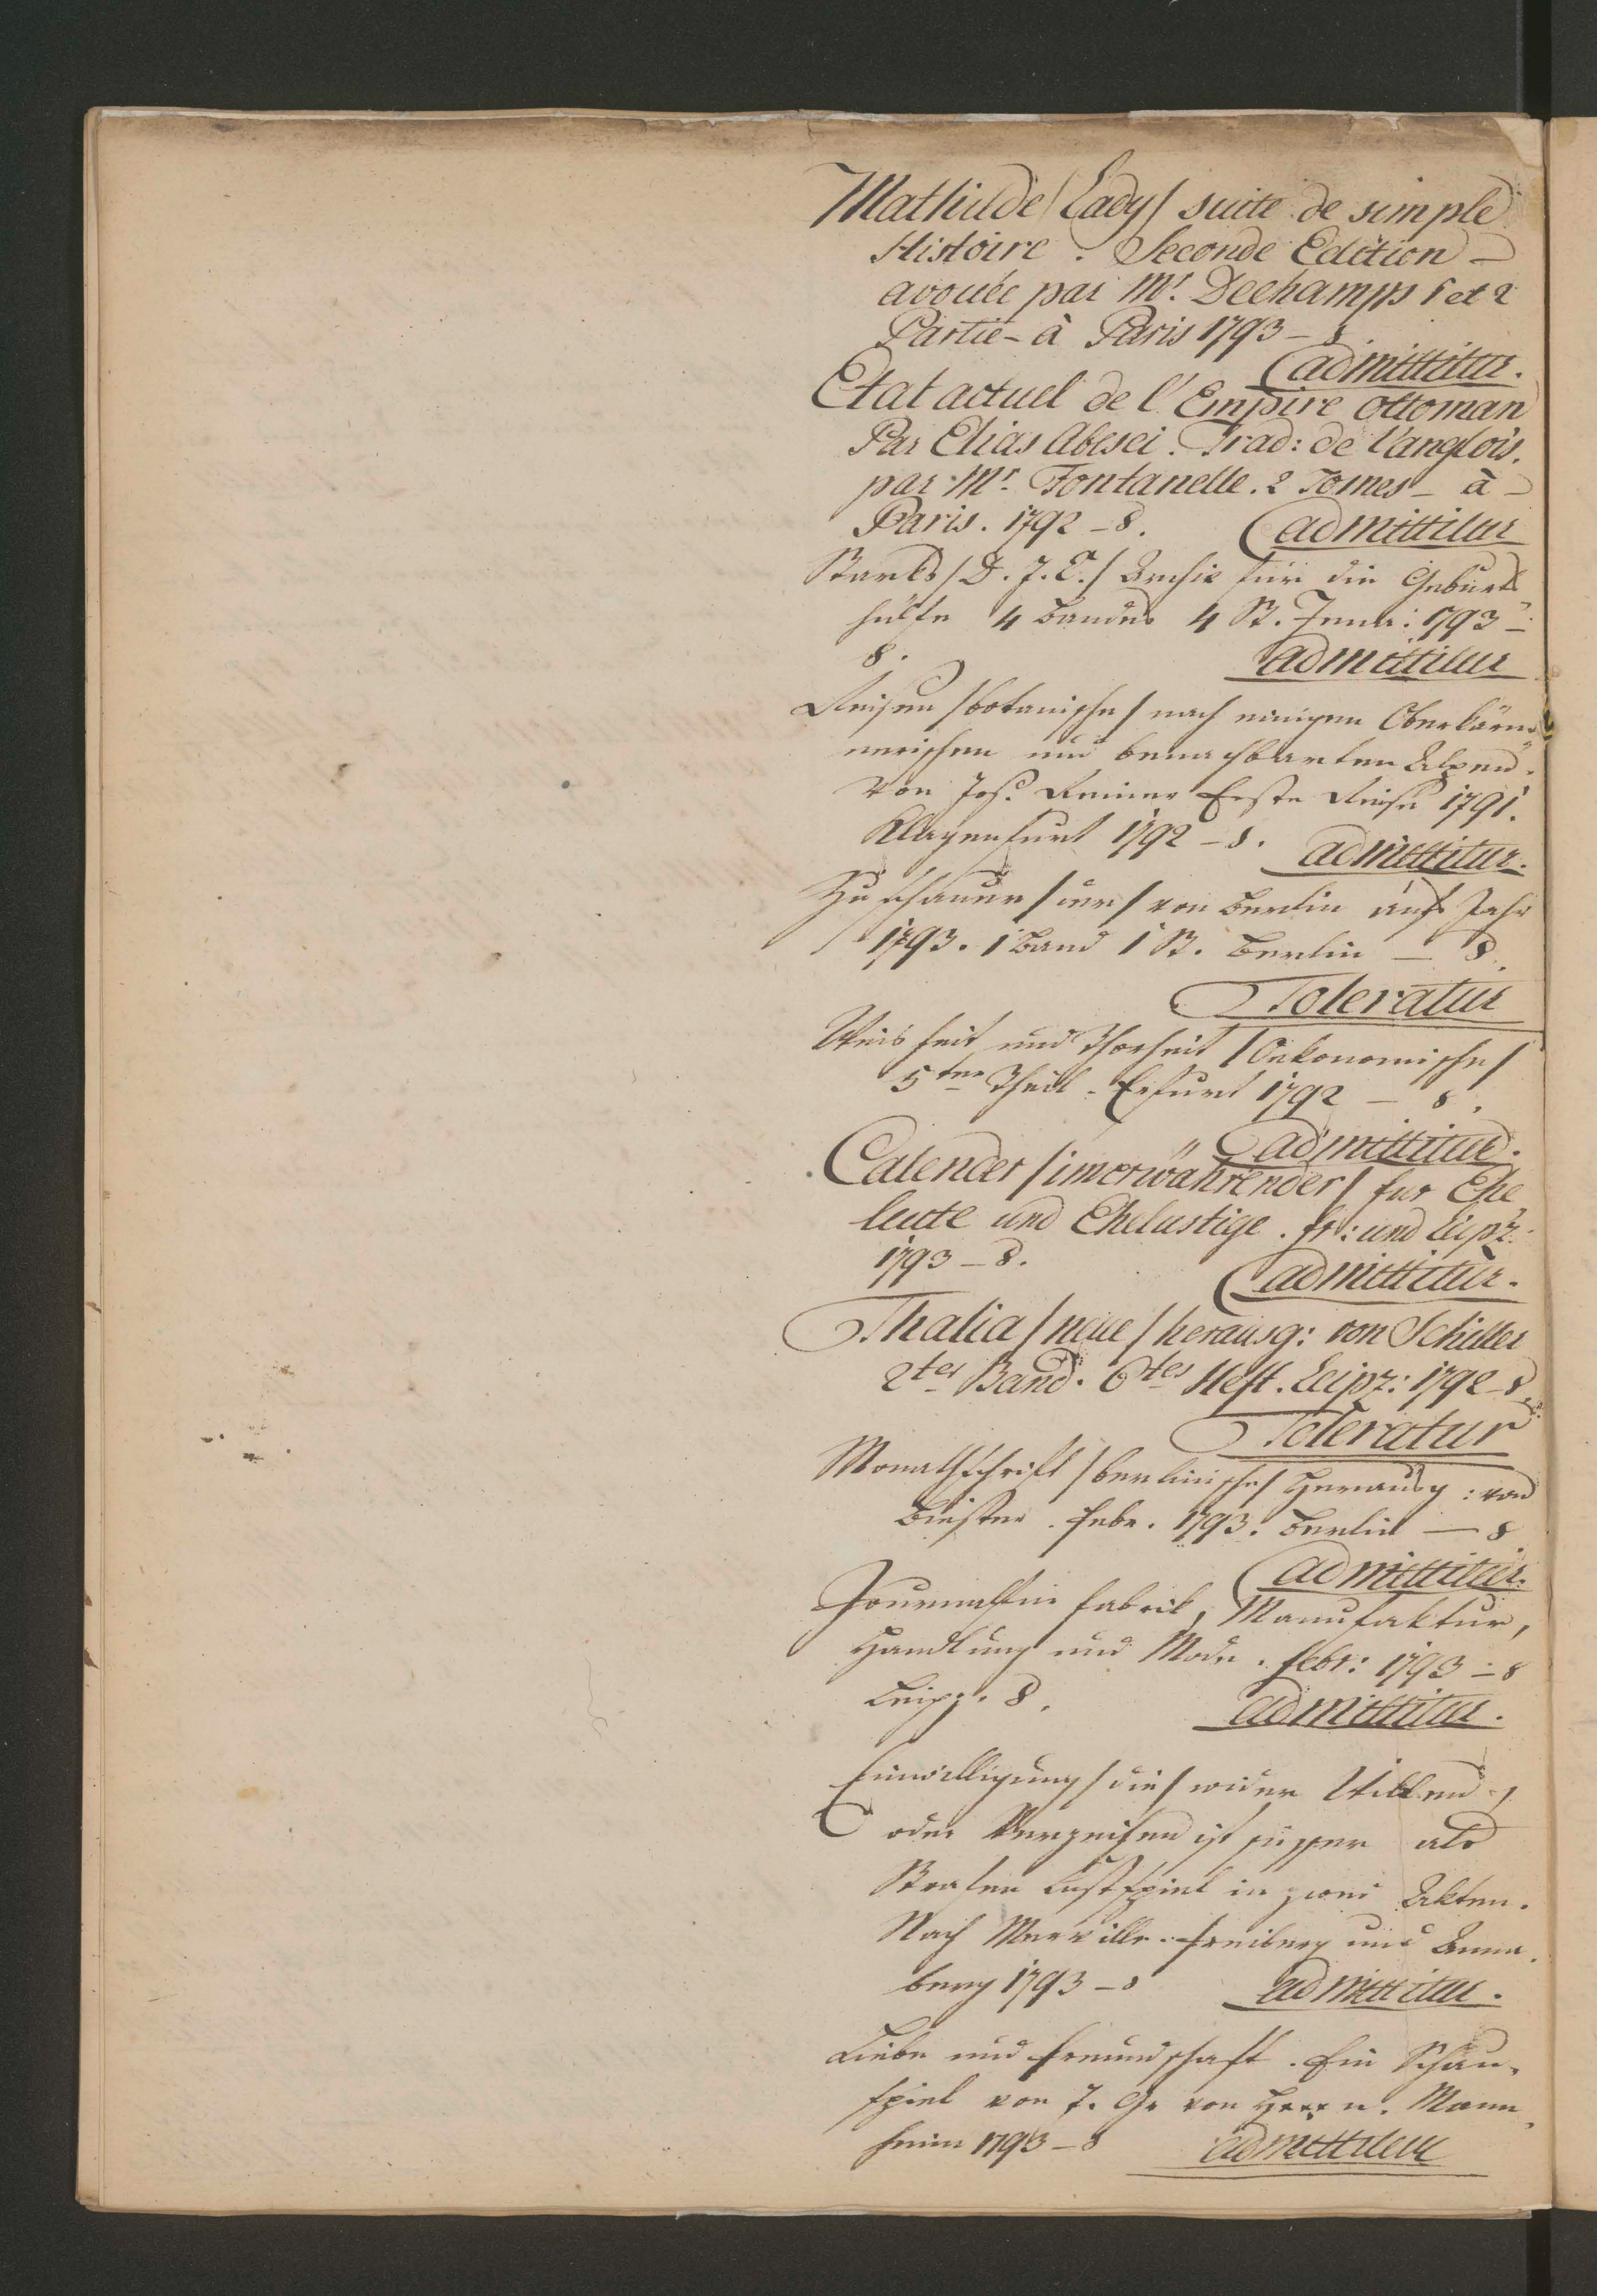 Mathilde /Lady/ suite de simple
Histoire. Seconde Edition –
avouée par Mr. Dechamps 1 et 2
Partie – à Paris 1793 – 8.
admittitur.
Etat actuel de l'Empire ottoman
Par Elias Abesci. Trad: de l'anglois.
par Mr. Fontanelle. 2 Tomes – à –
Paris. 1792 – 8. admittitur
Starks /D. J. C./ Archiv für die Geburts
hülfe 4 Bandes 4 St. Jena: 1793 –
8. admittitur
Reisen /botanische/ nach einigen Oberkärnt
nerischen und benachbarten Alpen.
Von Jos. Reiner Erste Reise 1791.
Klagenfurt 1792 – 8. admittitur.
Zuschauer /der/ von Berlin aufs Jahr
1793. 1 Band 1 St. Berlin – 8.
Toleratur
Weisheit und Thorheit /Oekonomische/
5ter Theil. Erfurt 1792 – 8.
admittitur.
Calender /imerwährender/ fur Ehe
leute und Ehelustige. fr: und Leipz:
1793 – 8.
admittitur.
Thalia /neue/ herausg: von Schiller
2ter Band. 6tes Heft. Leipz: 1792 – 8.
Toleratur
Monathschrift /berlinische/ Herausg: von
Biester. Febr. 1793. Berlin – 8
admittitur.
Journal für Fabrik, Manufaktur,
Handlung und Mode. Febr: 1793 – 8
Leipz. 8. admittitur.
Einwilligung /die/ wider Willen,
oder Verzeihen ist süsser als
Strafen Lustspiel in zwei Akten.
Nach Merville. Freiberg und Anna
berg 1793 – 8 admittitur.
Liebe und Freundschaft. Ein Schau-
spiel von J. Gr von Mann
heim 1793 – 8 admittitur